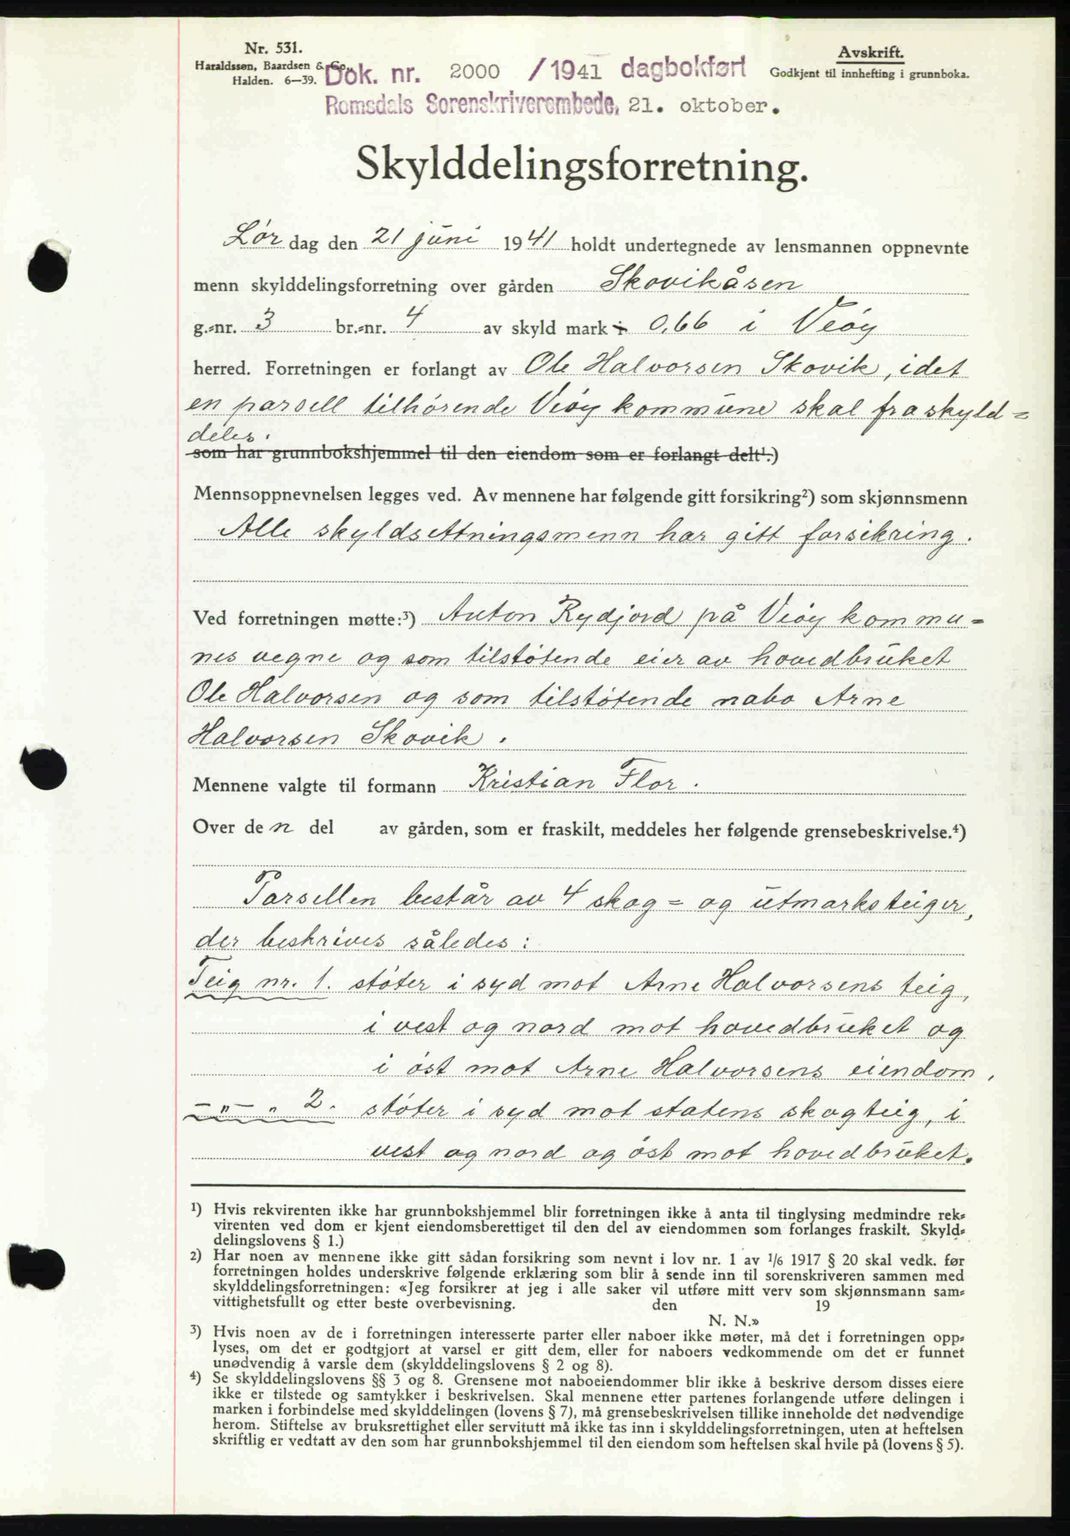 Nr. 531.
Haraldssøn, Baardsen & Co.,
Halden. 6—39.
Dok. nr. 2000 /1941 dagbokført
Romsdals Sorenskriverembede, 21. oktober.
Avskrift.
Godkjent til innhefting i grunnboka.
Skylddelingsforretning.
Lør dag den 21 juni 1941 holdt undertegnede av lensmannen oppnevnte
menn skylddelingsforretning over gården Skovikåsen
g.-nr. 3 br.-nr. 4 av skyld mark 0,66 i Veøy
herred. Forretningen er forlangt av Ole Halvorsen Skovik, idet
en parsell tilhørende Veøy kommune skal fraskyld=
deles.
som har grunnbokshjemmel til den eiendom som er forlangt delt¹.)
Mennsoppnevnelsen legges ved. Av mennene har følgende gitt forsikring²) som skjønnsmenn
Alle skyldsettningsmenn har gitt forsikring.
Ved forretningen møtte:³) Anton Rydjord på Veøy kommu=
nes vegne og som tilstøtende eier av hovedbruket
Ole Halvorsen og som tilstøtende nabo Arne
Halvorsen Skovik.
Mennene valgte til formann Kristian Flor.
Over den del av gården, som er fraskilt, meddeles her følgende grensebeskrivelse.⁴)
Parsellen består av 4 skog= og utmarksteiger,
der beskrives således:
Teig nr. 1. støter i syd mot Arne Halvorsens teig,
i vest og nord mot hovedbruket og
i øst mot Arne Halvorsens eiendom.
—"— " 2. støter i syd mot statens skogteig, i
vest og nord og øst mot hovedbruket.
¹) Hvis rekvirenten ikke har grunnbokshjemmel blir forretningen ikke å anta til tinglysing medmindre rek-
virenten ved dom er kjent eiendomsberettiget til den del av eiendommen som forlanges fraskilt. Skyld-
delingslovens § 1.)
²) Har noen av mennene ikke gitt sådan forsikring som nevnt i lov nr. 1 av 1/6 1917 § 20 skal vedk. før
forretningen holdes underskrive følgende erklæring som blir å sende inn til sorenskriveren sammen med
skylddelingsforretningen: «Jeg forsikrer at jeg i alle saker vil utføre mitt verv som skjønnsmann sam-
vittighetsfullt og etter beste overbevisning. den 19
N. N.»
³) Hvis noen av de i forretningen interesserte parter eller naboer ikke møter, må det i forretningen opp-
lyses, om det er godtgjort at varsel er gitt dem, eller for naboers vedkommende om det er funnet
unødvendig å varsle dem (skylddelingslovens § 2 og 8).
⁴) Se skylddelingslovens §§ 3 og 8. Grensene mot naboeiendommer blir ikke å beskrive dersom disses eiere
ikke er tilstede og samtykker i beskrivelsen. Skal mennene etter partenes forlangende utføre delingen i
marken i forbindelse med skylddelingen (lovens § 7), må grensebeskrivelsen tillike inneholde det nødvendige
herom. Stiftelse av bruksrettighet eller servitutt må ikke tas inn i skylddelingsforretningen, uten at heftelsen
skriftlig er vedtatt av den som har grunnbokshjemmel til den eiendom som heftelsen skal hvile på (lovens § 5).